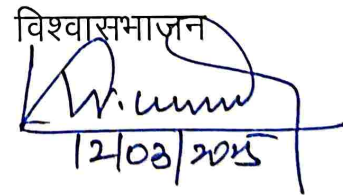 विश्वासभाजन
12/03/2025